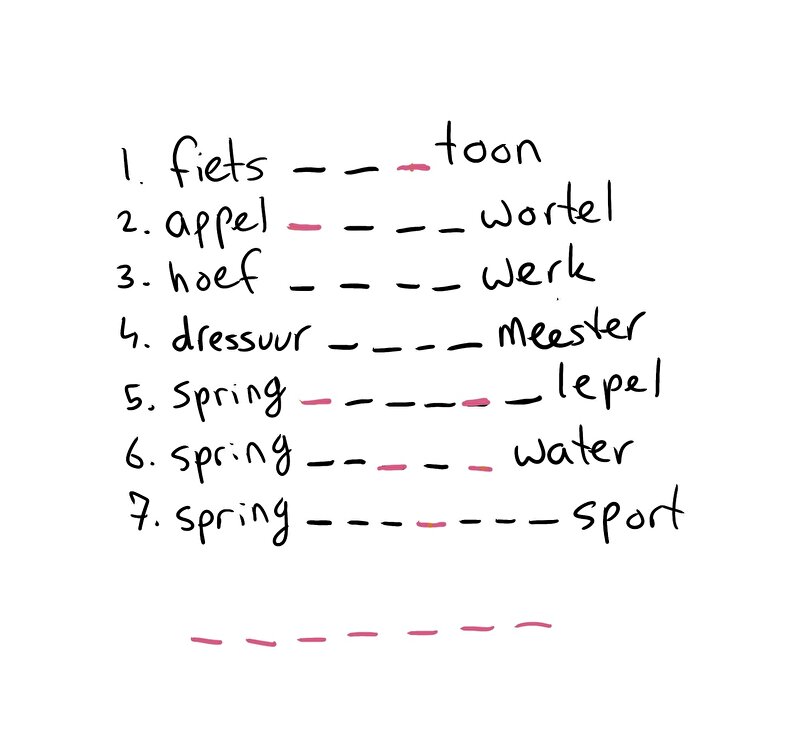 1. fiets _ _ _ toon
2. appel _ _ _ _ wortel
3. hoef _ _ _ _ werk
4. dressuur _ _ _ _ meester
5. spring _ _ _ _ _ _ lepel
6. spring _ _ _ _ _ water
7. spring _ _ _ _ _ _ _ sport
_ _ _ _ _ _ _